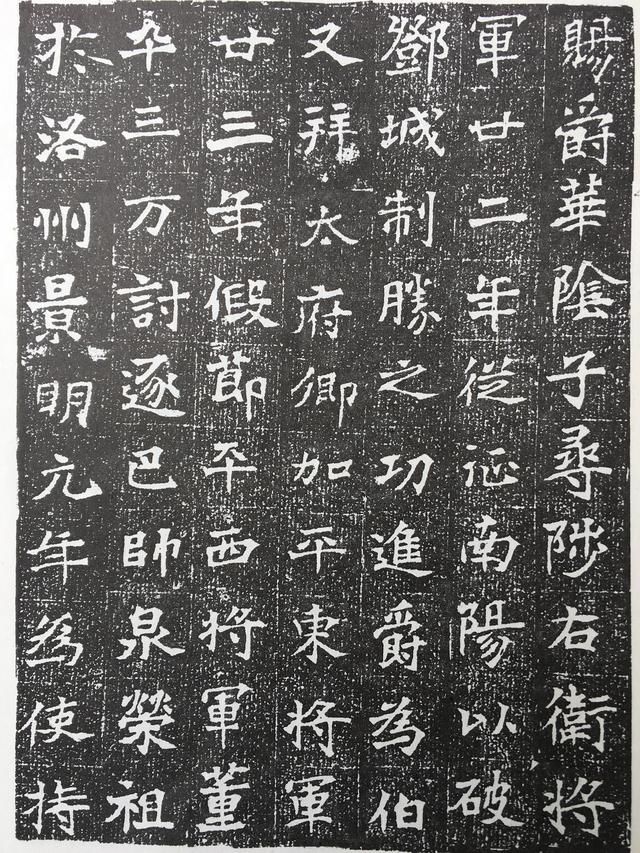 賜爵華陰子尋陟右衛將
軍廿二年從征南陽以破
鄧城制勝之功進爵為伯
又拜太府卿加平東將軍
廿三年假節平西將軍董
卒三万討逐巴帥泉榮祖
於洛州景明元年為使持